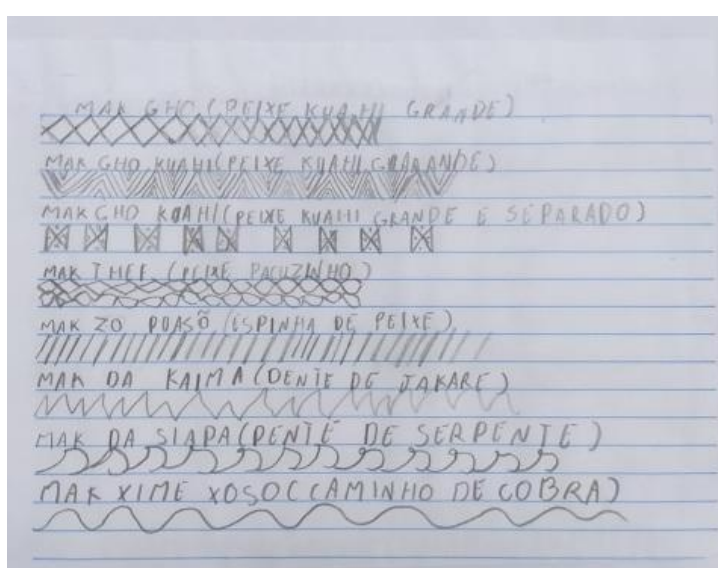 MAK GHO (PEIXE KUAHI GRANDE)
MAK GHO KUAHI (PEIXE KUAHI GRAANDE)
MAK GHO KUAHI (PEIXE KUAHI GRANDE E SEPARADO)
MAK THEE (PEIXE PACUZINHO)
MAK ZO POASÕ (ESPINHA DE PEIXE)
MAK DA KAIMA (DENTE DE JAKARE)
MAK DA SIAPA (DENTE DE SERPENTE)
MAK XIME XOSOC (CAMINHO DE COBRA)